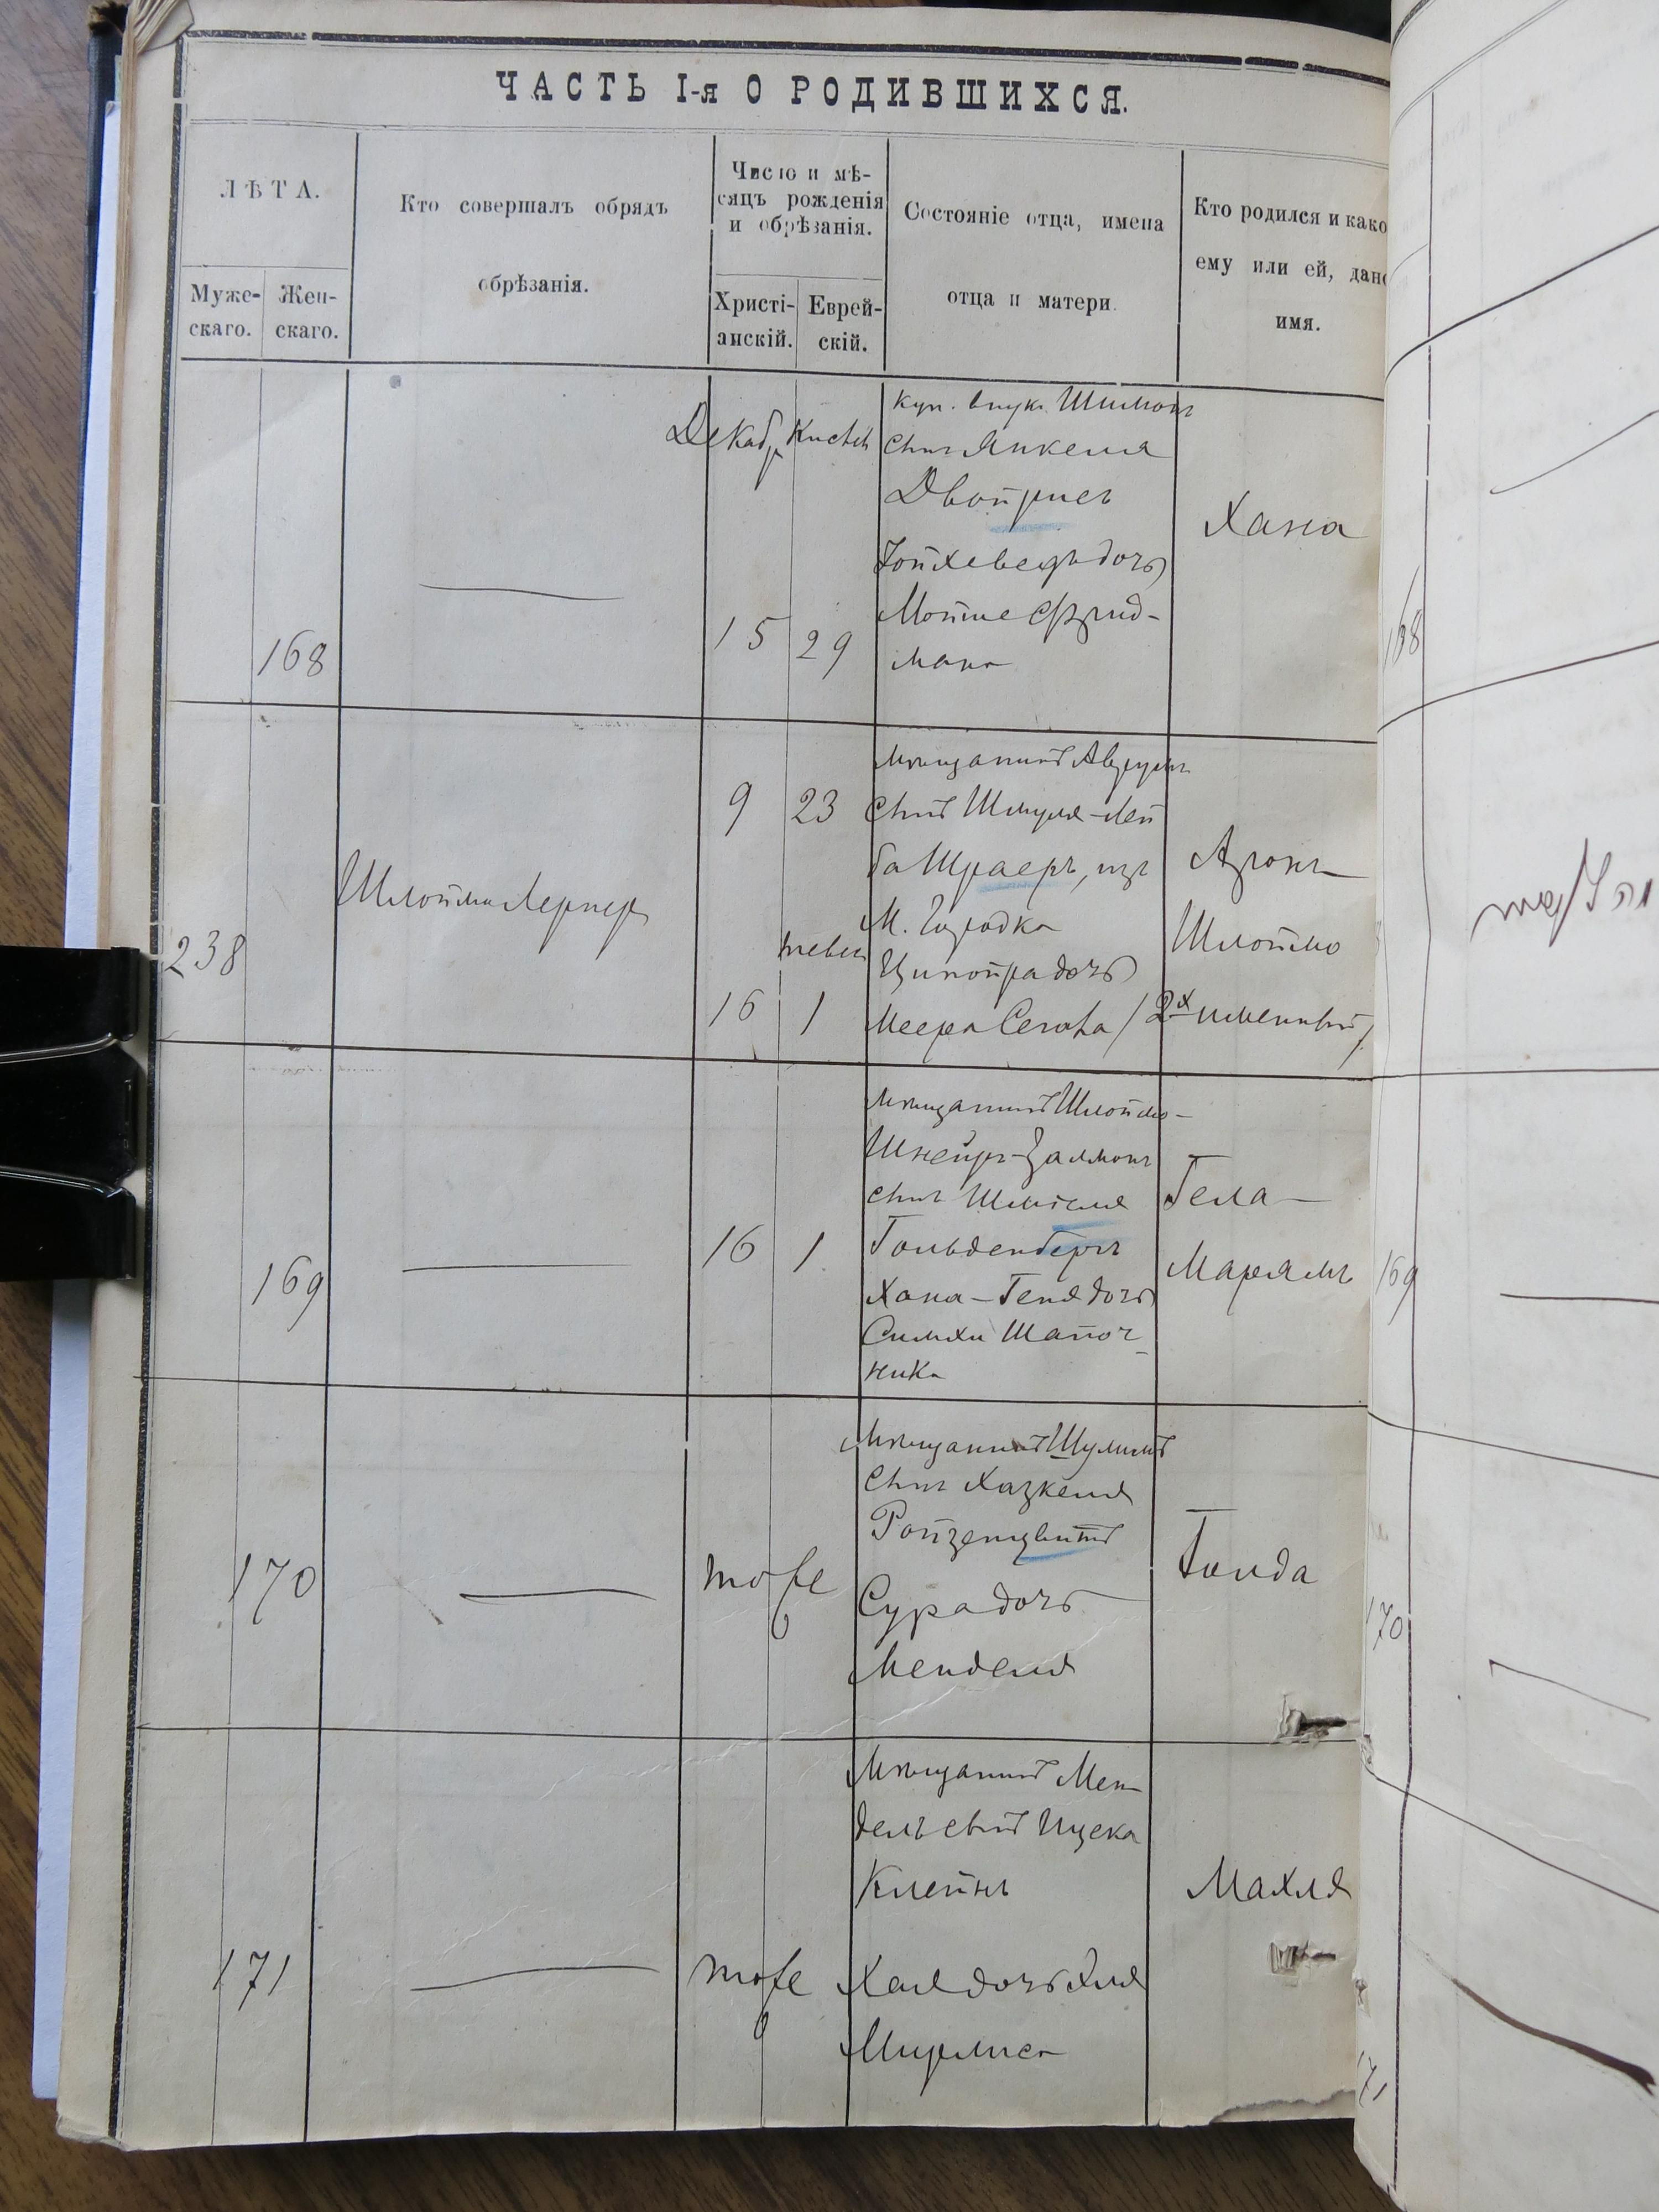 ЧАСТЬ I-я О РОДИВШИХСЯ.
ЛѢТА.
Муже-
скаго.
Жен-
скаго.
Кто совершалъ обрядъ
обрѣзанія.
Число и мѣ-
сяцъ рожденія
и обрѣзанія.
Христі-
анскій.
Еврей-
скій.
Состояніе отца, имена
отца и матери.
Кто родился и како
ему или ей, дано
имя.
168
Декабр
15
29
куп. внукъ Шимонъ
сынъ Янкеля
Двойрисъ
Іойхеведъ дочь
Мойше Фрид-
мана
Хана
168
238
Шлойма Лернеръ
9
23
16
Тевет
1
мѣщанинъ Аврумъ
сынъ Шмуля-Лей
ба Шраеръ, изъ
м. Городка
Ципойра дочь
Меера Сегала
Аронъ
Шлоймо
/2х именный/
169
16
1
мѣщанинъ Шлоймо-
Шнейръ-Залмонъ
сынъ Шміеля
Гольденбергъ
Хана-Геня дочь
Симхи Шапоч-
ника
Гела-
Марямъ
169
170
тоже
Мѣщанинъ Шулимъ
сынъ Хазкеля
Ройзенцвитъ
Сура дочь
Менделя
Голда
170
171
тоже
Мѣщанинъ Мен-
дель сынъ Ицека
Клейнъ
Хая дочь Хля
Махля
171